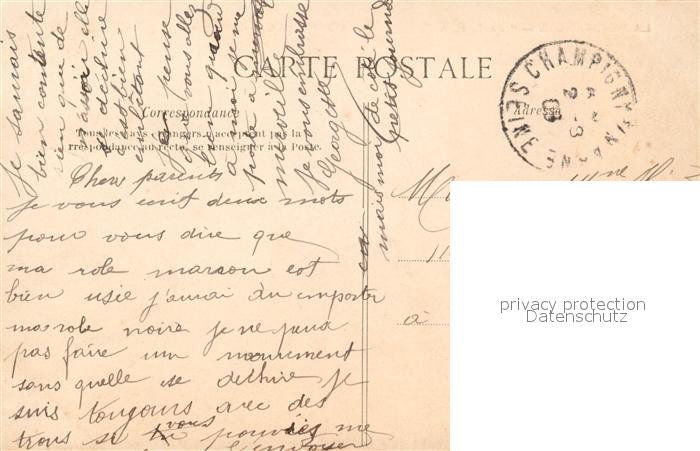 CARTE POSTALE
Correspondance
Tous les pays étrangers n'acceptent pas la
correspondance au recto, se renseigner à la Poste.
Adresse
CHAMPIGNY
SEINE
Chers parents
je vous ecrit deux mots
pour vous dire que
ma robe marron est
bien usée j'aurai du emporter
ma robe noire je ne peux
pas faire un mouvement
sans quelle se dechire je
suis toujours avec des
trous si vous pouviez me
l'envoyer
je serais
bien contente
rien que de
elle
se déchire
c'est bien
embêtant
je pense
que vous allez
bien quand
a moi je me
porte a
merveille
je vous embrasse
Georgette
mais moi de coté le
petit
à
privacy protection
Datenschutz